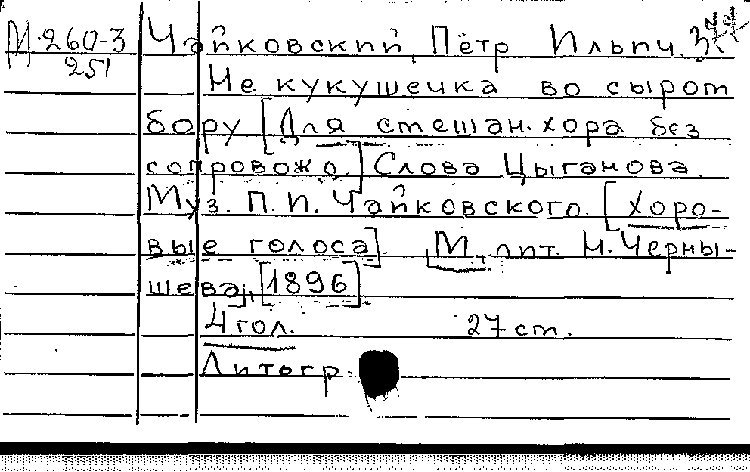 М.260-3 Чайковский, Пётр Ильич.
251
Не кукушечка во сыром
бору [Для смешан. хора без
сопровожд.] Слова Цыганова.
Муз. П. И. Чайковского. [Хоро-
вые голоса] [М., лит. Н. Черны-
шева], [1896]
4 гол. 27 cm.
Литогр.